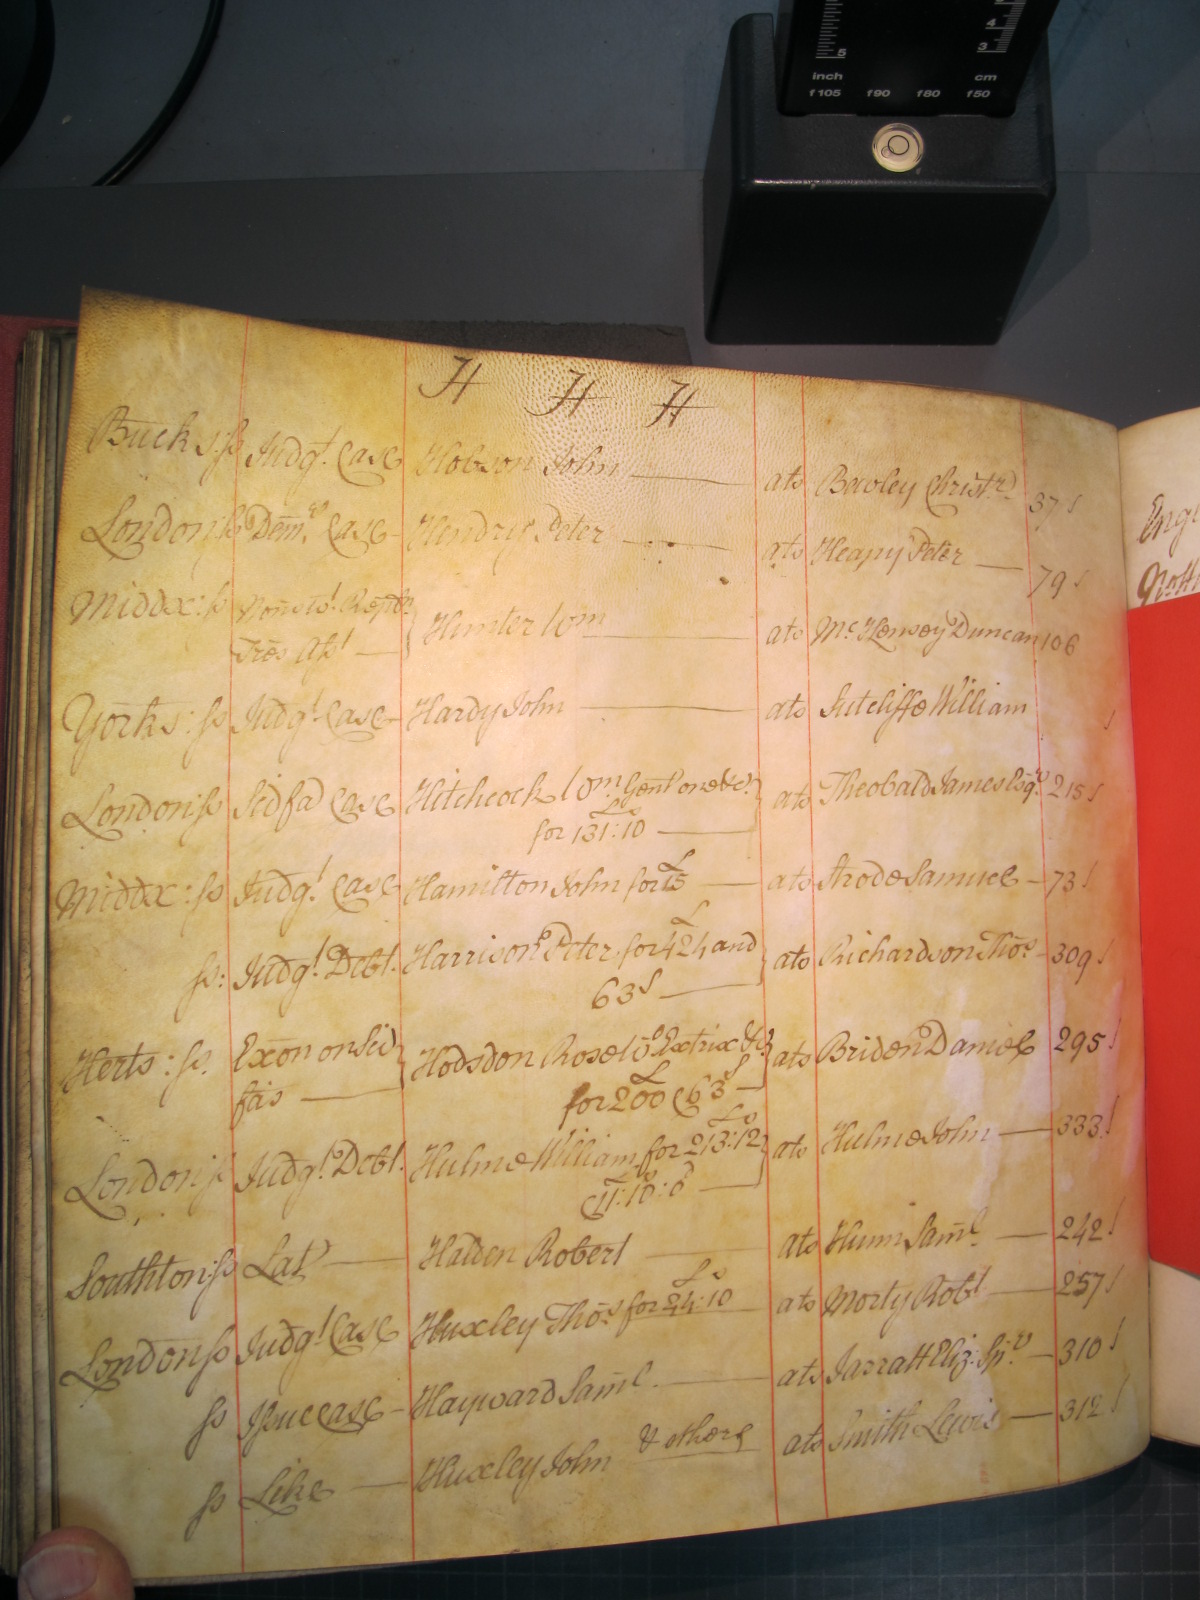 5 4 3
inch cm
f105 f90 f80 f50
H H H
Bucks: ss Judgt. Case Hobson John ats Bawley Christr. 37
London ss Demrs. Case Hendry Peter ats Heapy Peter 79
Middx: ss Nonsts. Reptn. Hunter Wm ats McKensey Duncan 106
Tres Asst
Yorks: ss Judgt. Case Hardy John ats Sutcliffe William
London ss Scifa Case Hitchcock Wm. Gent one &c. ats Theobald James Esqr. 215
for 131:10
Middx: ss Judgt. Case Hamilton John for 15 ats Strode Samuel 73
ss: Judgt. Debt. Harrison Peter for 424 and ats Richardson Thos. 309
63s
Herts: ss. Exon on Sci Hodsdon Rose Wo. Extrix &c ats Briden Daniel 295
fas for 200 & 63s
London ss Judgt. Debt. Hulme William for 213:12 ats Hulme John 333
& 11:10:0
Southton: ss Lat Halden Robert ats Hunn Saml. 242
London ss Judgt. Case Huxley Thos. for 24:10 ats Morty Robt. 257
ss Issue case Hayward Saml. ats Jarratt Eliz. Spr. 310
ss Like Huxley John & others ats Smith Lewis 312